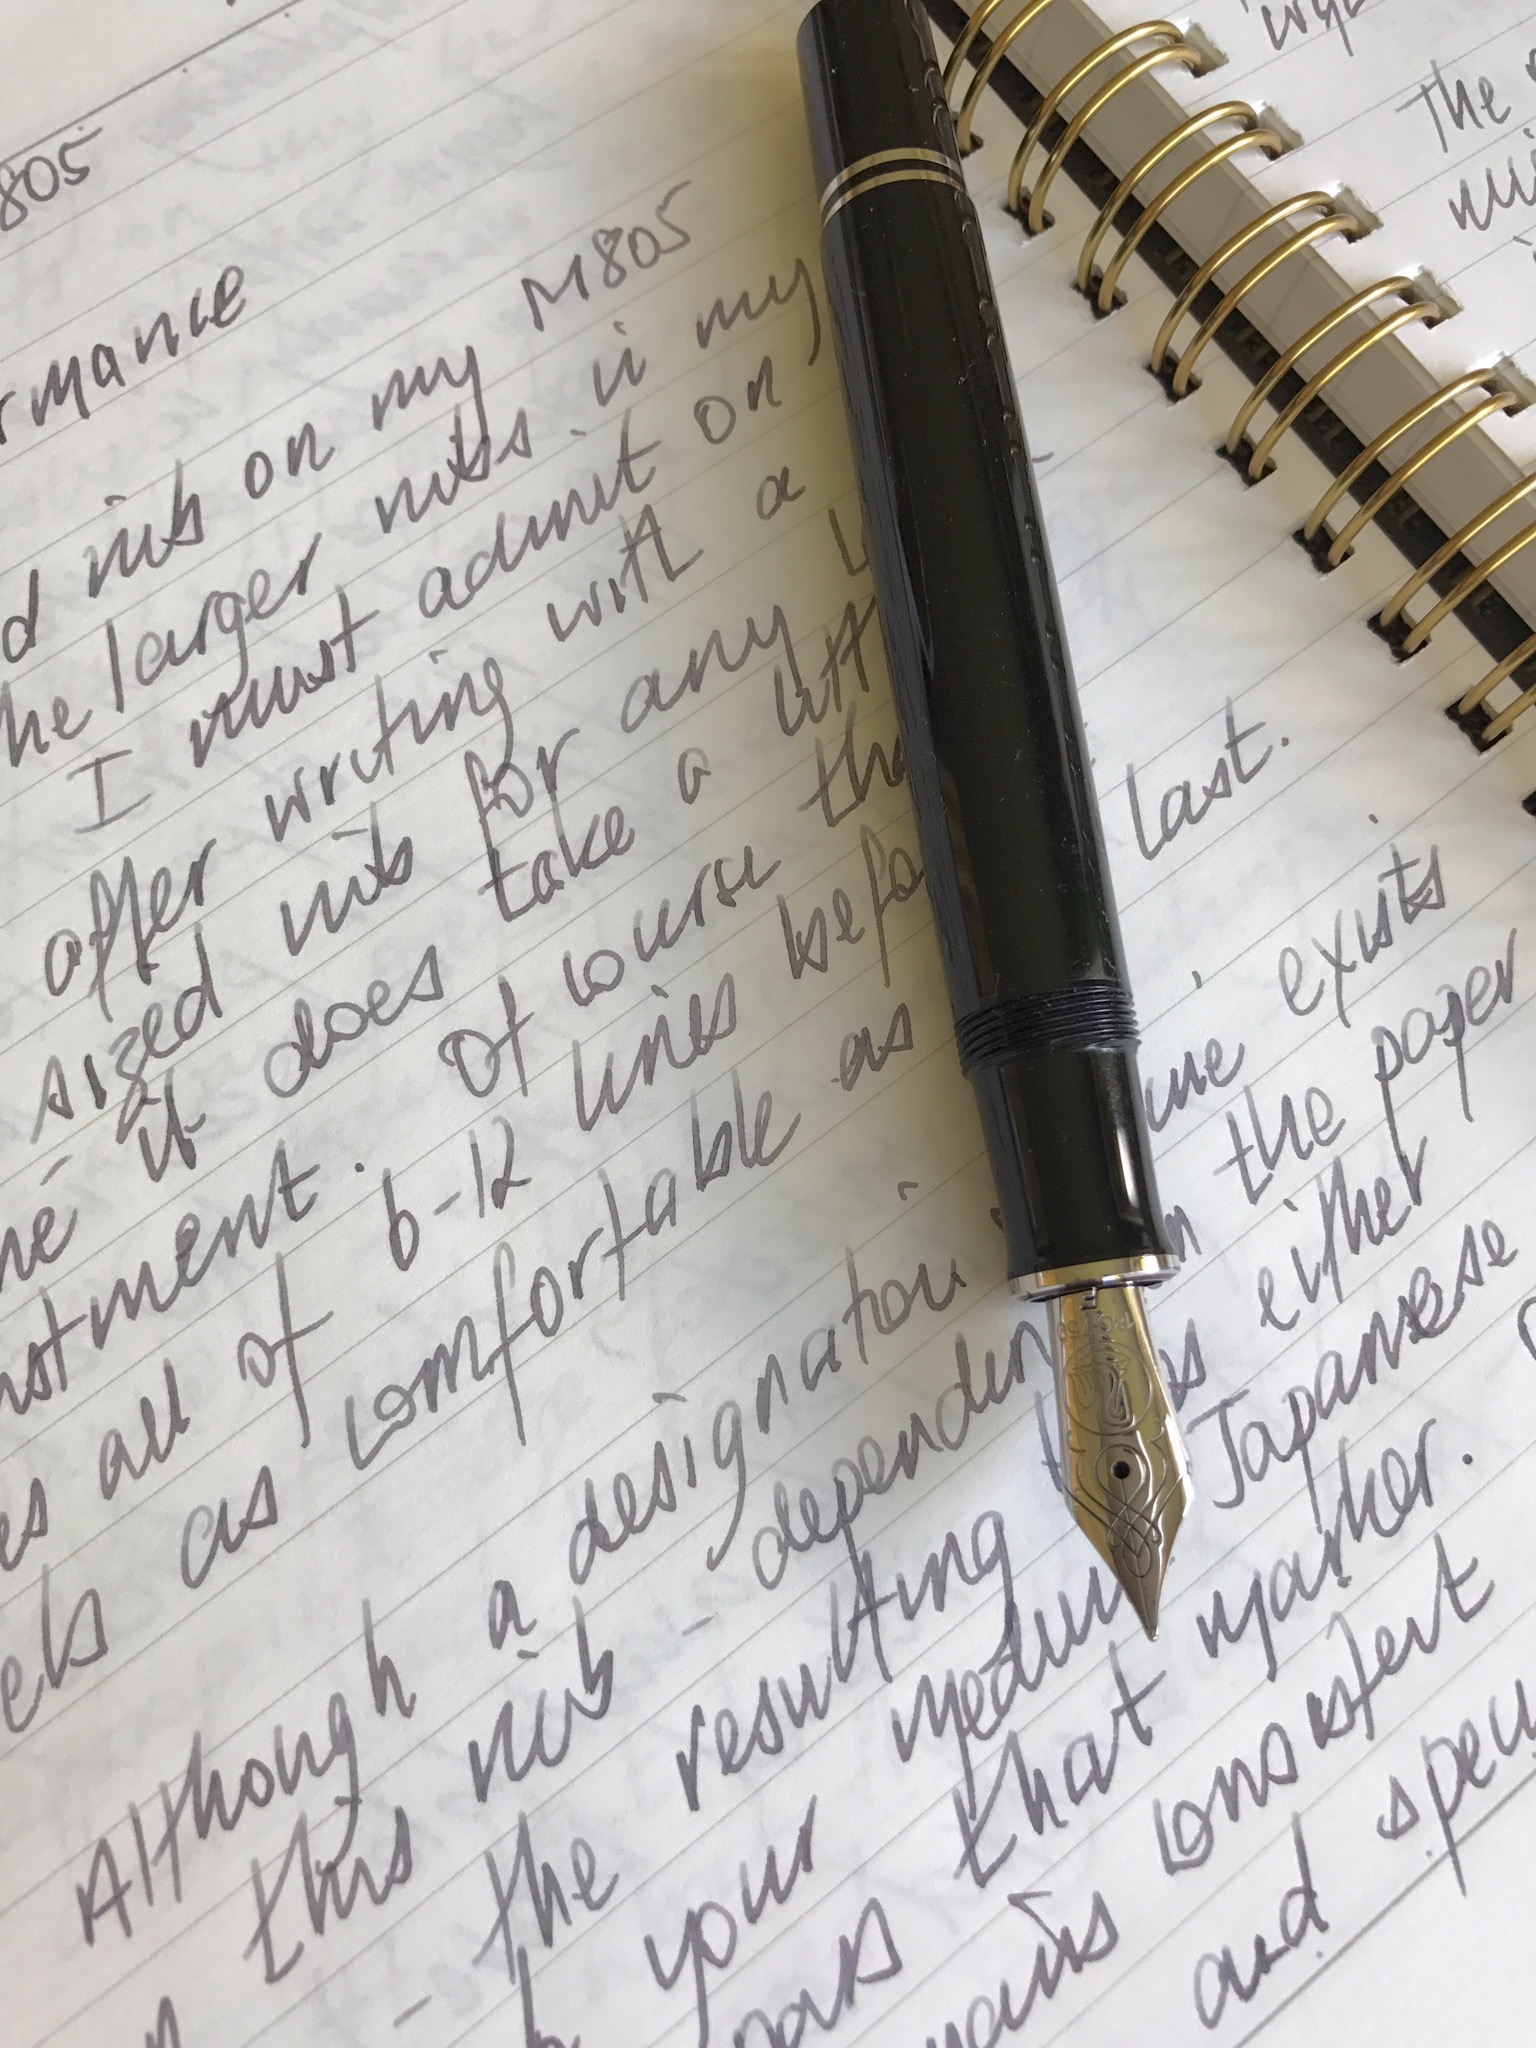 805
rmance
nib on my M805
he larger nibs in my
I must admit on
after writing with a
sized nibs for any
it does take a litt
stment. Of course tha
all of 6-12 lines befo last.
els as comfortable as
Although a designation exists
this nib - depending on the paper
- the resulting is either
your medium Japanese
that marker.
consistent
and
The
18C-750